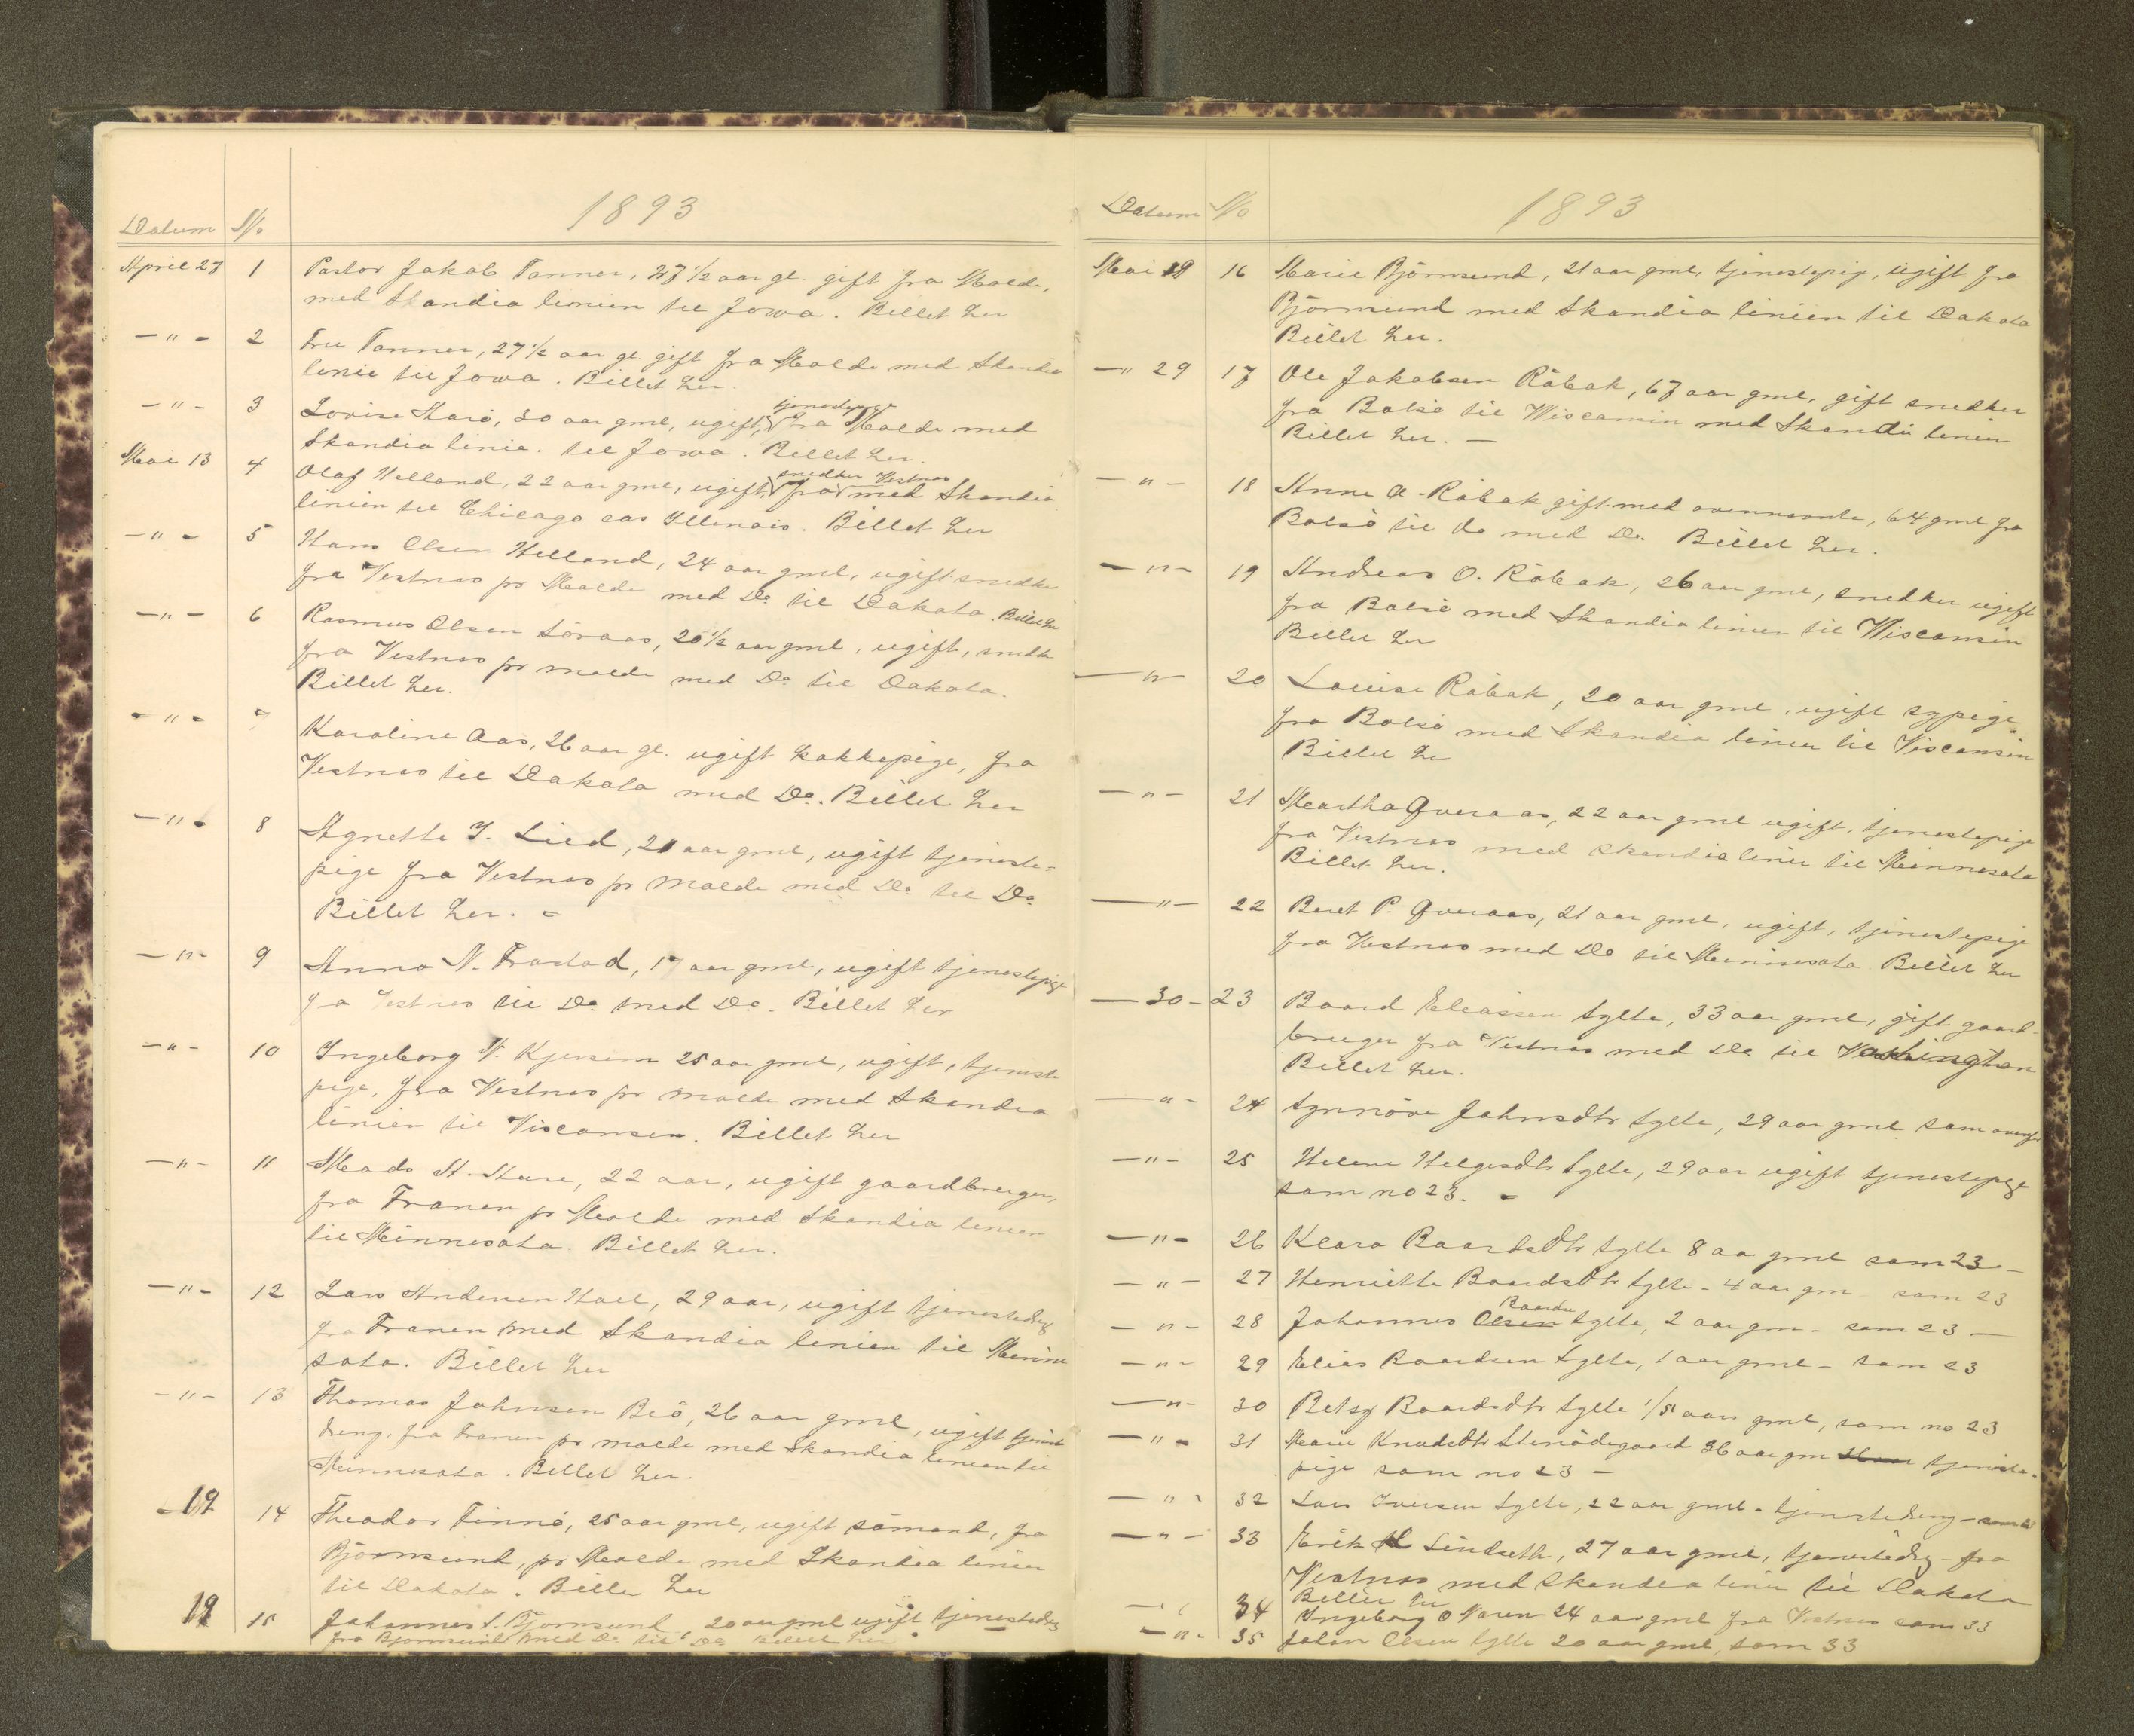 1893
Datum No
April 27 1 Pastor Jakob Tanner, 27 1/2 aar gl. gift fra Molde,
med Skandia linien til Jowa. Billet her
— " — 2 Fru Tanner, 27 1/2 aar gl. gift fra Molde med Skandia
linie til Jowa. Billet her.
tjenestepige
— " — 3 Lovise Harö, 30 aar gml, ugift, fra Molde med
Skandia linie. til Jowa. Billet her.
snedker Vestnes
Mai 13 4 Olaf Helland, 22 aar gml, ugift, fra med Skandia
linien til Chicago Illinois. Billet her
— " — 5 Hans Olsen Helland, 24 aar gml, ugift snedker
fra Vestnes pr Molde med Do til Dakota. Billet her
— " — 6 Rasmus Olsen Söraas, 20 1/2 aar gml, ugift, snedk
fra Vestnes pr molde med Do til Dakota.
Billet her.
— " — 7 Karoline Aas, 26 aar gl. ugift kokkepige, fra
Vestnes til Dakota med Do. Billet her
— " — 8 Agnette J. Lied, 21 aar gml, ugift tjeneste=
pige fra Vestnes pr Molde med Do til Do
Billet her. =
— " — 9 Anna N. Frostad, 17 aar gml, ugift tjenestepige
fra Vestnes til Do med Do. Billet her
— " — 10 Ingeborg N. Kjersem 25 aar gml, ugift, tjeneste
pige, fra Vestnes pr molde med Skandia
linien til Visconsin. Billet her
— " — 11 Mads A. Hure, 22 aar, ugift gaardbruger,
fra Franen pr Molde med Skandia linien
til Minnesota. Billet her.
— " — 12 Lars Andersen Hoel, 29 aar, ugift tjenestedreng
fra Franen med Skandia linien til Minne
sota. Billet her
— " — 13 Thomas Johnsen Beö, 26 aar gml, ugift tjeneste
dreng, fra Franen pr molde med Skandia linien til
Minnesota. Billet her.
19 14 Theodor Finnö, 25 aar gml, ugift sömand, fra
Björnsund, pr Molde med Skandia linien
til Dakota. Billet her
19 15 Johannes S. Bjornsund 20 aar gml ugift tjenestedreng
fra Bjornsund med Do til Do Billet her
1893
Datum No
Mai 19 16 Marie Björnsund, 21 aar gml, tjenestepige, ugift fra
Björnsund med Skandia linien til Dakota
Billet her.
— " 29 17 Ole Jakobsen Råbak, 67 aar gml, gift snedker
fra Bolsö til Wisconsin med Skandia linien
Billet her. —
— " — 18 Anne O. Råbak gift med ovennævnte, 64 gml fra
Bolsö til do med Do. Billet her.
— " — 19 Andreas O. Råbak, 26 aar gml, snedker ugift
fra Bolsö med Skandia linien til Wisconsin
Billet her
— " — 20 Louise Råbak, 20 aar gml, ugift sypige,
fra Bolsö med Skandia linien til Visconsin
Billet her
— " — 21 Martha Øveraas, 22 aar gml ugift, tjenestepige
fra Vestnes med Skandia linie til Minnesota
Billet her.
— " — 22 Beret P. Øveraas, 21 aar gml, ugift, tjenestepige
fra Vestnes med Do til Minnesota Billet her
— 30 — 23 Baard Eliassen Sylte, 33 aar gml, gift gaard-
bruger fra Vestnes med Do til Vashington
Billet her.
— " — 24 Synnöve JohnsDtr Sylte, 29 aar gml som ovenfor
— " — 25 Helene HelgesDtr Sylte, 29 aar ugift tjenestepige
som no 23. =
— " — 26 Klara BaardsDtr Sylte 8 aa gml som 23 —
— " — 27 Henriette BaardsDtr Sylte - 4 aar gm som 23
Baardsen
— " — 28 Johannes Olsen Sylte, 2 aar gm - som 23 —
— " — 29 Elias Baardsen Sylte, 1 aar gml - som 23
— " — 30 Betsy BaardsDtr Sylte 1/5 aars gml, som no 23
— " — 31 Marie KnudsDtr Stenödegaard 36 aar gm tjeneste-
pige som no 23 —
— " — 32 Lars Iversen Sylte, 22 aar gml - tjenestedreng - som 23
— " — 33 Erik Lindseth, 27 aar gml, tjenestedrg - fra
Vestnes med Skandia linie til Dakota
Billet her
— " 34 Ingeborg O Varen 24 aar gml fra Vestnes som 33
— " — 35 Johan Olsen Sylte 20 aar gml, som 33